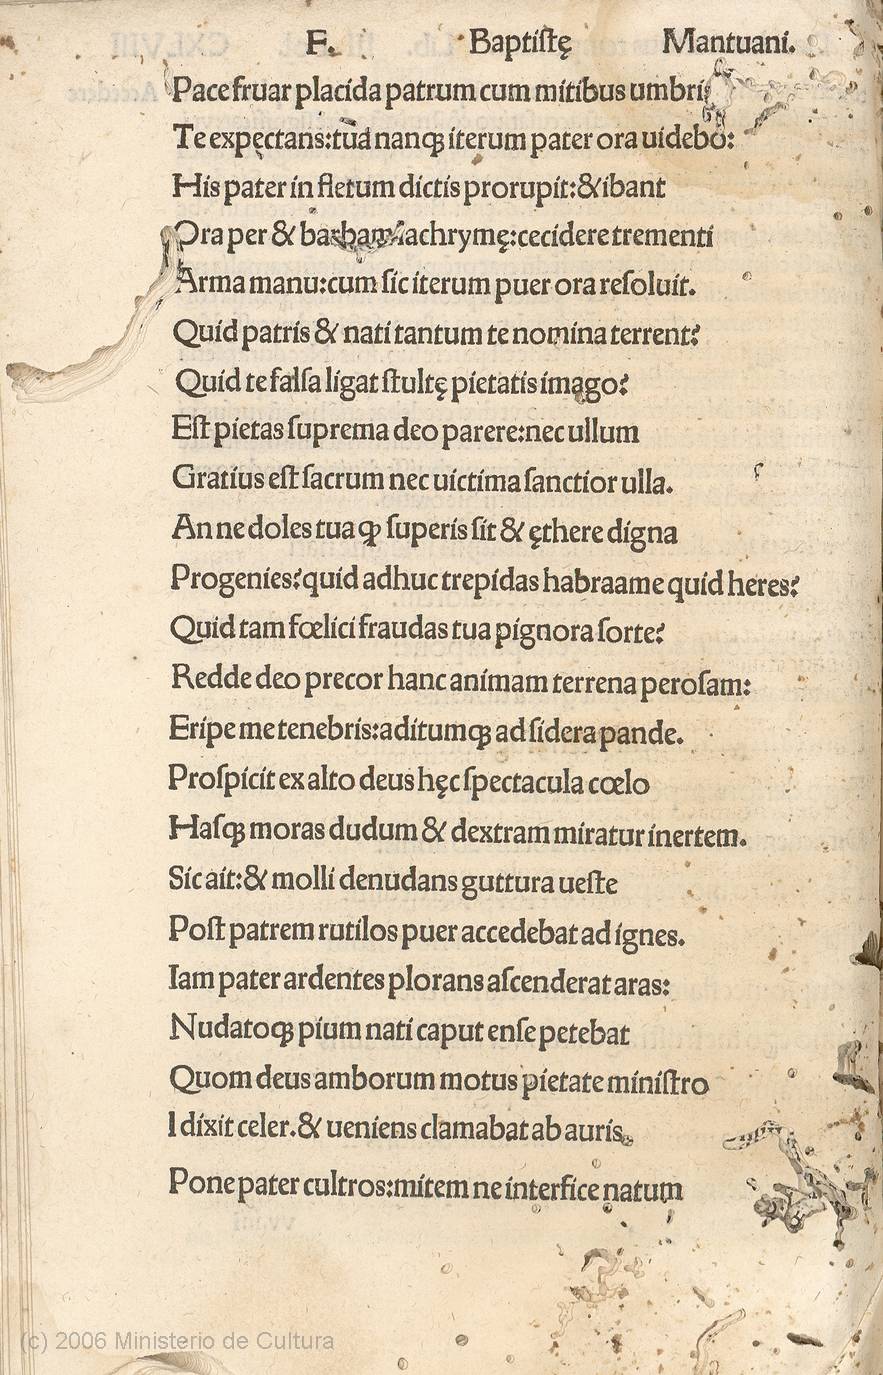 F. Baptiſtę Mantuani.
Pace fruar placida patrum cum mitibus umbris
Te expęctans:tuā nanꝗ iterum pater ora uidebo:
His pater in fletum dictis prorupit:& ibant
Ora per & barbam lachrymę:cecidere trementi
Arma manu:cum ſic iterum puer ora reſoluit.
Quid patris & nati tantum te nomina terrent?
Quid te falſa ligat ſtultę pietatis imago?
Eſt pietas ſuprema deo parere:nec ullum
Gratius eſt ſacrum nec uictima ſanctior ulla.
An ne doles tua ꝙ ſuperis ſit & ęthere digna
Progenies?quid adhuc trepidas habraame quid heres?
Quid tam fœlici fraudas tua pignora ſorte?
Redde deo precor hanc animam terrena peroſam:
Eripe me tenebris:aditumꝗ ad ſidera pande.
Proſpicit ex alto deus hęc ſpectacula cœlo
Haſꝗ moras dudum & dextram miratur inertem.
Sic ait:& molli denudans guttura ueſte
Poſt patrem rutilos puer accedebat ad ignes.
Iam pater ardentes plorans aſcenderat aras:
Nudatoꝗ pium nati caput enſe petebat
Quom deus amborum motus pietate miniſtro
I dixit celer.& ueniens clamabat ab auris
Pone pater cultros:mitem ne interfice natum
(c) 2006 Ministerio de Cultura